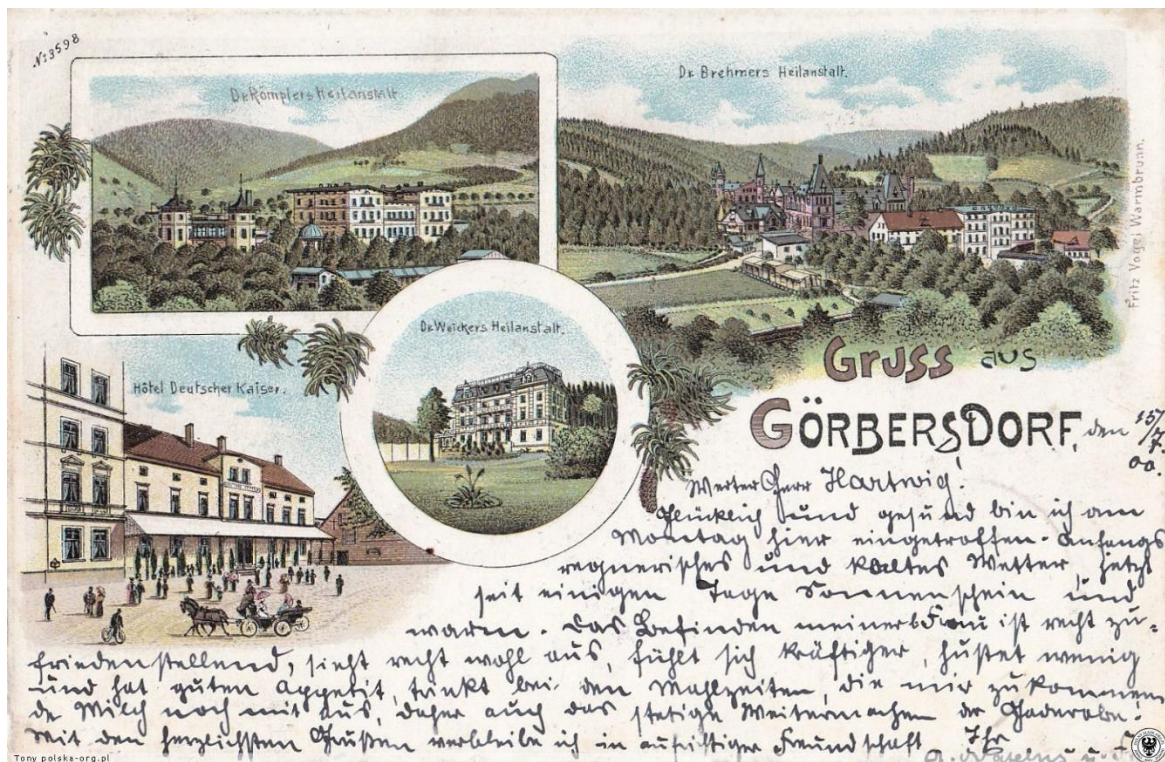 No 3598
Dr. Römplers Heilanstalt
Dr. Brehmers Heilanstalt.
Dr. Weickers Heilanstalt.
Hôtel Deutscher Kaiser.
Fritz Vogel, Warmbrunn.
Gruss aus
GÖRBERSDORF, den 15/7. 00.
Werter Herr Hartwig!
Glücklich und gesund bin ich am
Montag hier eingetroffen. Anfangs
regnerisches und kaltes Wetter, jetzt
seit einigen Tage Sonnenschein und
warm. Das Befinden meiner Frau ist recht zu-
friedenstellend, sieht recht wohl aus, fühlt sich kräftiger, hustet wenig
und hat guten Appetit, trinkt bei den Mahlzeiten, die mir zukommen
de Milch noch mit aus, daher auch das stetige Weitermachen der
Mit den herzlichsten Grüßen verbleibe ich in aufrichtiger Freundschaft Ihr
Tony polska-org.pl